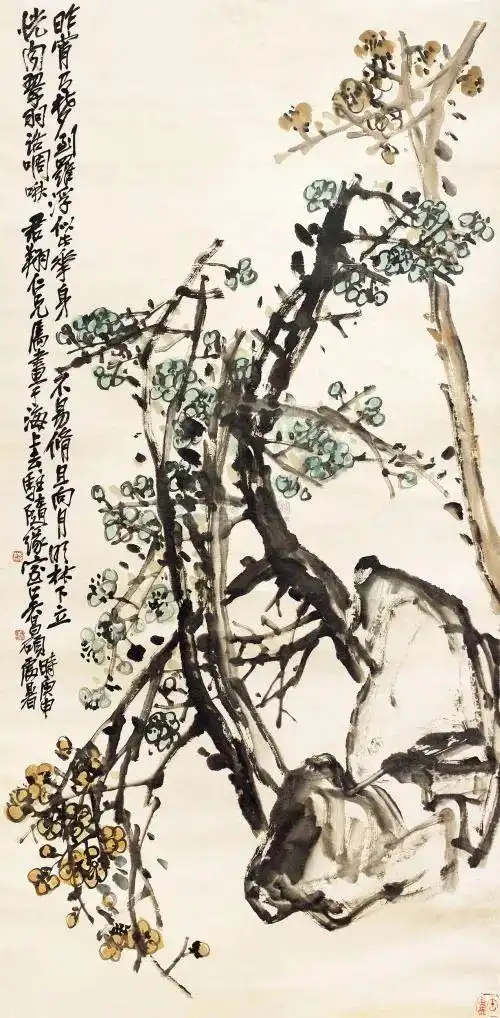 昨宵夢到羅浮似此華身不易脩且向月明林下立
恍聞翠羽語啁啾 君翔仁兄屬畫于海上去駐隨緣室吳昌碩時庚申
處暑